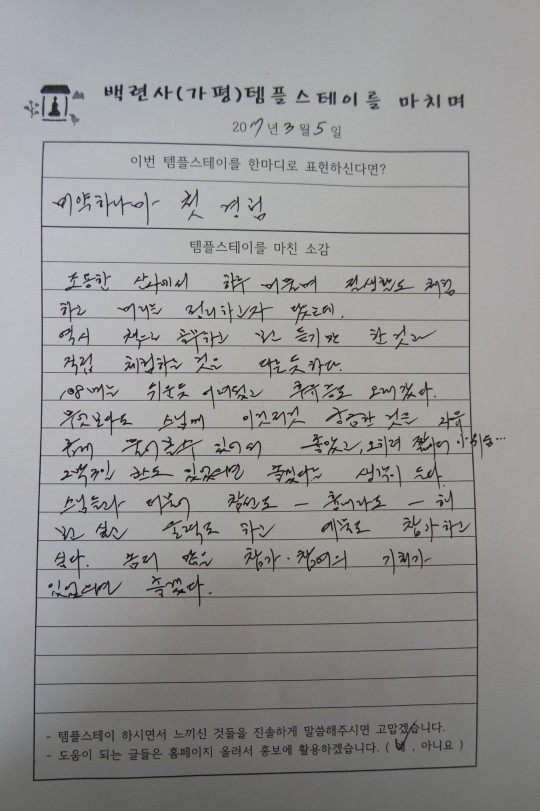 백련사(가평)템플스테이를 마치며
2017년 3월 5일
이번 템플스테이를 한마디로 표현하신다면?
미약하나마 첫 경험
템플스테이를 마친 소감
조용한 산사에서 하루 머물며 절생활도 체험
하고 머리도 정리하고자 왔는데,
역시 책으로 공부하고 보고 듣기만 한 것과
직접 체험하는 것은 다른 듯하다.
108배는 쉬운듯 어려웠고 후유증도 오래갔다.
무엇보다도 스님께 이것저것 궁금한 것을 자유
롭게 물어볼 수 있어서 좋았고, 오히려 짧아서 아쉬움…
2박3일 한도 있었으면 좋겠다는 생각이 든다.
스님들과 더불어 참선도 - 흉내라도 - 해
보고 싶고 울력도 하고 예불도 참가하고
싶다. 좀더 많은 참가·참여의 기회가
있었으면 좋겠다.
- 템플스테이 하시면서 느끼신 것들을 진솔하게 말씀해주시면 고맙겠습니다.
- 도움이 되는 글들은 홈페이지 올려서 홍보에 활용하겠습니다. ( 예 , 아니요 )